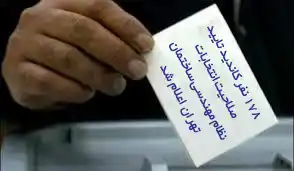 ۱۷۸ نفر کاندید تایید
صلاحیت انتخابات
نظام مهندسی ساختمان
تهران اعلام شد